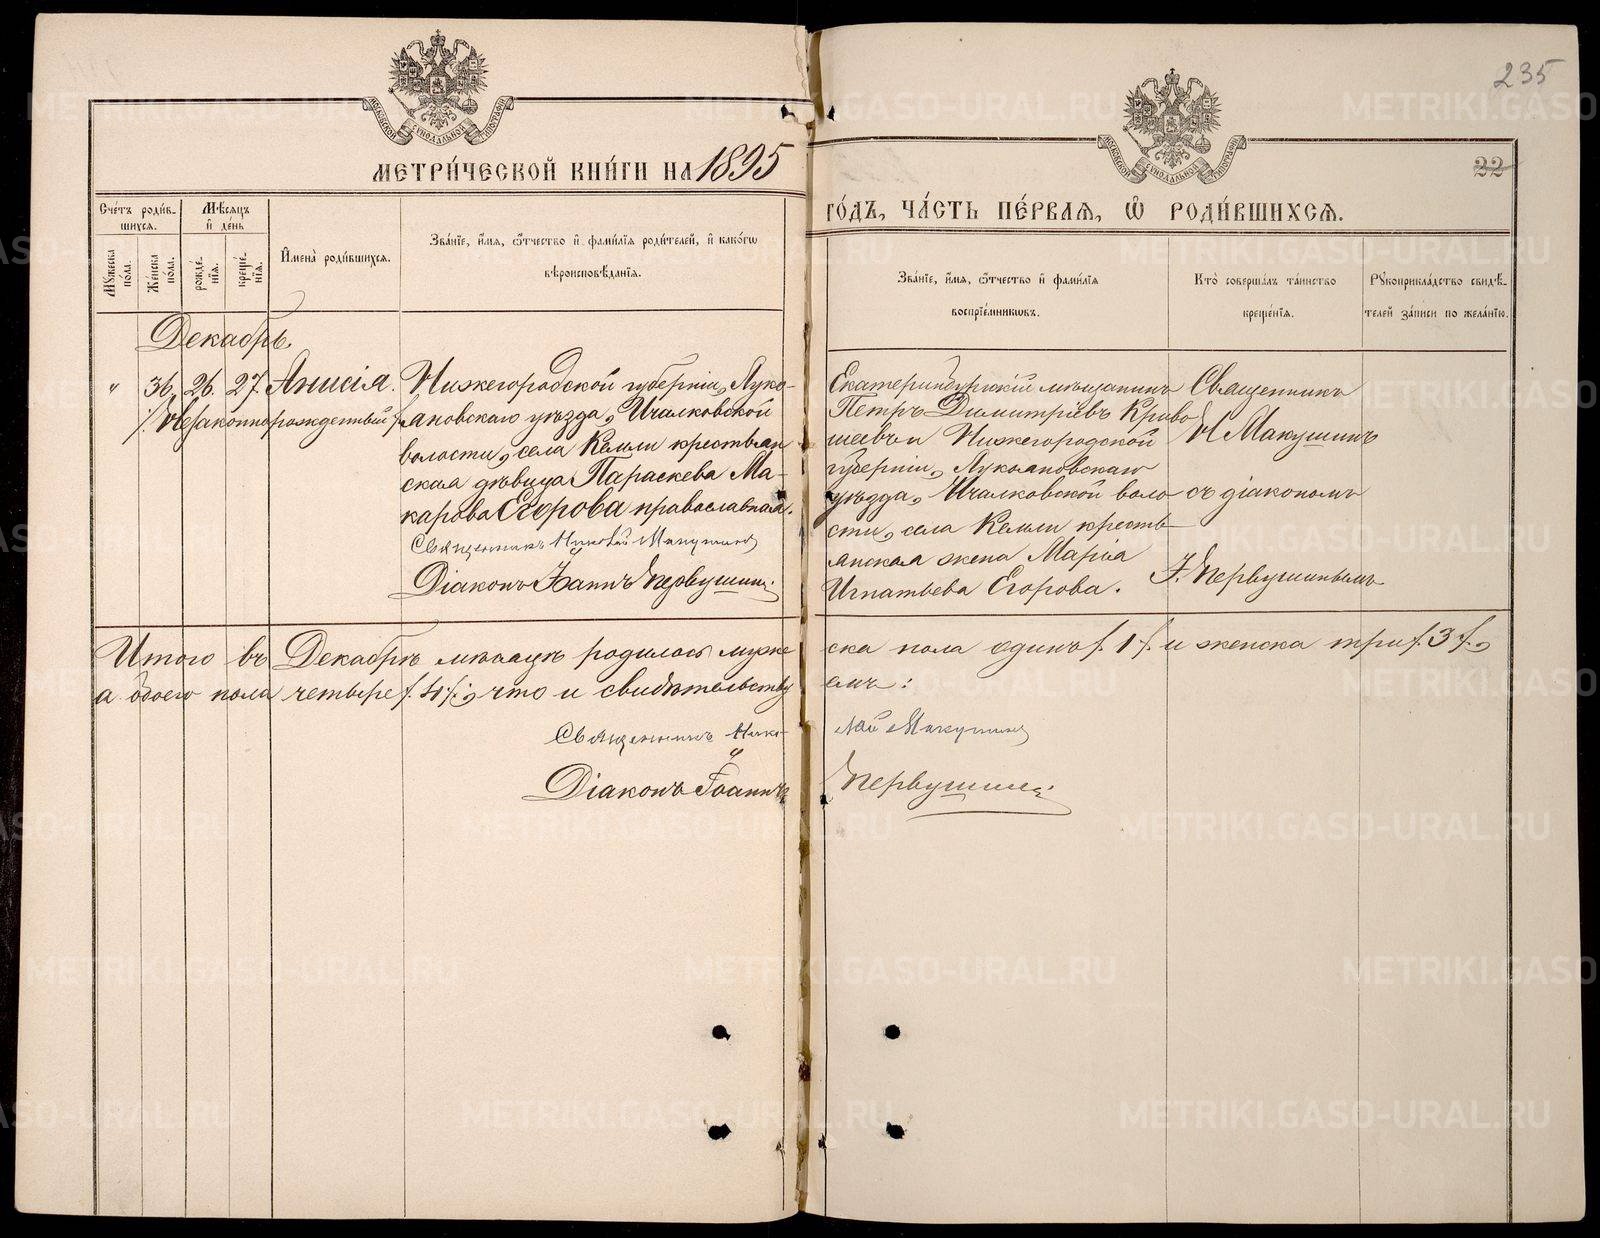 235
22
МОСКОВСКОЙ СѴНОДАЛЬНОЙ ТИПОГРАФІИ
МОСКОВСКОЙ СѴНОДАЛЬНОЙ ТИПОГРАФІИ
МЕТРИ́ЧЕСКОЙ КНИ́ГИ НА 1895
ГО́ДЪ, ЧА́СТЬ ПЕ́РВАЯ, Ѡ҆ РОДИ́ВШИХСЯ.
Сче́тъ роди́в-
шихся.
Мѣ́сяцъ
и҆ де́нь
Мꙋ́жеска по́ла.
Же́нска по́ла.
рожде́нїя.
креще́нїя.
И҆мена̀ роди́вшихся.
Зва́нїе, и҆́мя, ѻ҆́тчество и҆ фами́лїя роди́телей, и҆ како́гѡ
вѣроисповѣ́данїя.
Зва́нїе, и҆́мя, ѻ҆́тчество и҆ фами́лїя
воспрїе́мниковъ.
Кто̀ соверша́лъ та́инство
креще́нїя.
Рꙋкоприкла́дство свидѣ́-
телей за́писи по жела́нїю.
Декабрь.
" 36. 26. 27. Анисія.
/. Незаконнорожденный /.
Нижегородской губерніи, Луко-
яновскаго уѣзда, Ичалковской
волости, села Кемли крестьян
ская дѣвица Параскева Ма-
карова Егорова православная.
Священникъ Николай Макушинъ
Діаконъ Іоаннъ Первушинъ
Екатеринбургскій мѣщанинъ
Петръ Димитріевъ Криво
шеевъ и Нижегородской
губерніи, Лукояновскаго
уѣзда, Ичалковской воло
сти, села Кемли кресть-
янская жена Марія
Игнатьева Егорова.
Священникъ
Н Макушинъ
съ діакономъ
І. Первушинымъ
Итого въ Декабрѣ мѣсяцѣ родилось муже
ска пола одинъ /. 1 /. и женска три /. 3 /.,
а обоего пола четыре /. 4 /., что и свидѣтельству
емъ:
Священникъ Нико-
лай Макушинъ
Діаконъ Іоаннъ
Первушинъ
METRIKI.GASO-URAL.RU